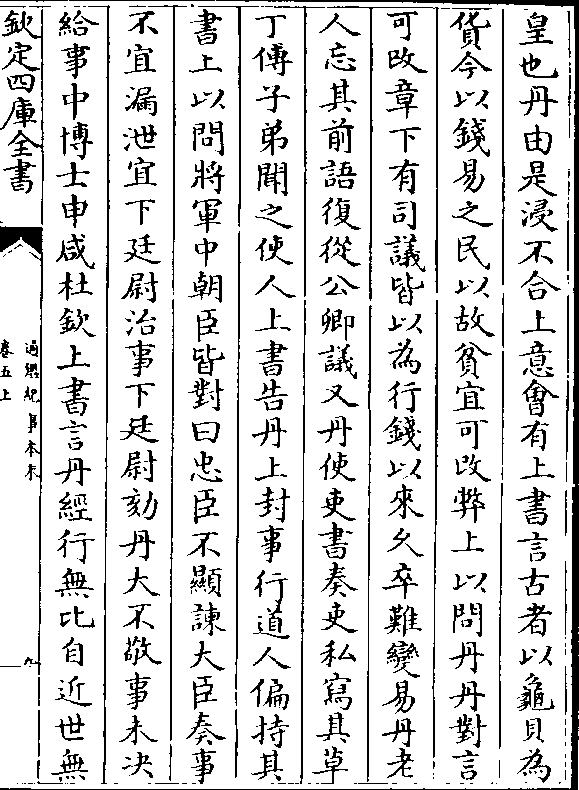 皇也丹由是浸不合上意會有上書言古者以龜貝為
貨今以錢易之民以故貧宜可改弊上以問丹丹對言
可改章下有司議皆以為行錢以來久卒難變易丹老
人忘其前語復從公卿議又丹使吏書奏吏私寫其草
丁傅子弟聞之使人上書告丹上封事行道人偏持其
書上以問將軍中朝臣皆對曰忠臣不顯諫大臣奏事
不宜漏泄宜下廷尉治事下廷尉劾丹大不敬事未决
給事中博士申咸杜欽上書言丹經行無比自近世無
欽定四庫全書
通鑑紀事本末
卷五上
九